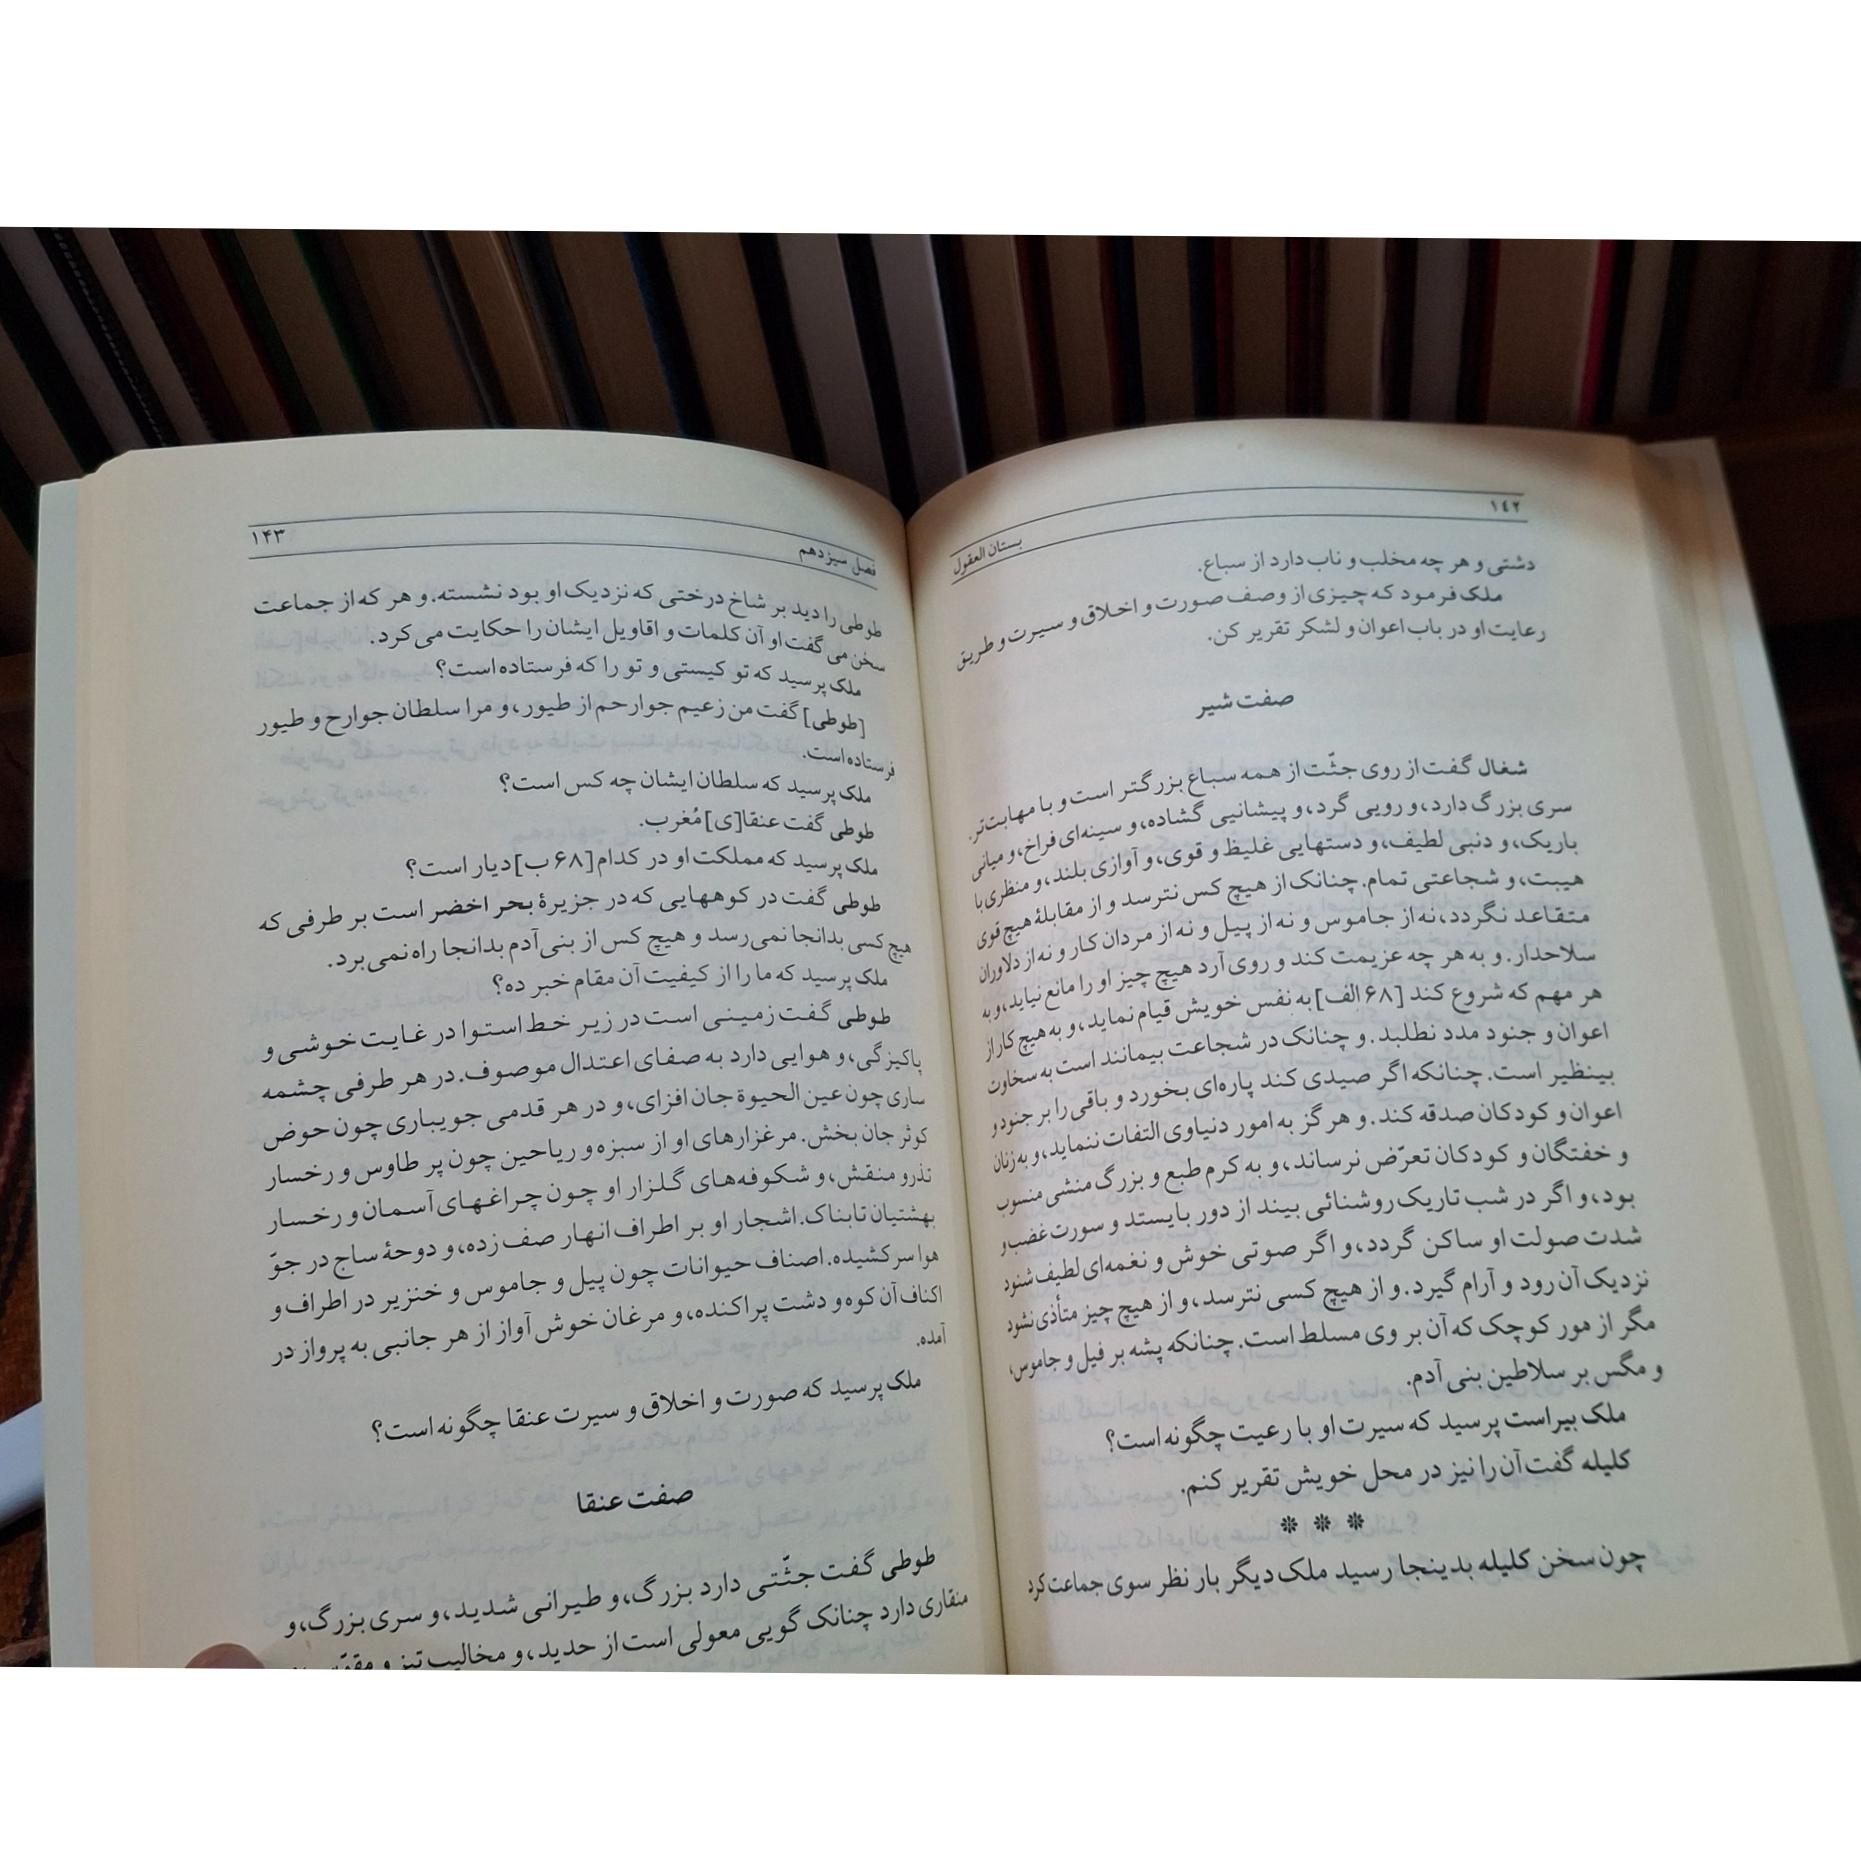 ۱۴۲
بستان العقول
دشتی و هر چه مخلب و ناب دارد از سباع.
ملک فرمود که چیزی از وصف صورت و اخلاق و سیرت و طریق
رعایت او در باب اعوان و لشکر تقریر کن.
صفت شیر
شغال گفت از روی جثّت از همه سباع بزرگتر است و با مهابت‌تر.
سری بزرگ دارد، و رویی گرد، و پیشانیی گشاده، و سینه‌ای فراخ، و میانی
باریک، و دنبی لطیف، و دستهایی غلیظ و قوی، و آوازی بلند، و منظری با
هیبت، و شجاعتی تمام. چنانک از هیچ کس نترسد و از مقابلهٔ هیچ قوی
متقاعد نگردد، نه از جاموس و نه از پیل و نه از مردان کار و نه از دلاوران
سلاحدار. و به هر چه عزیمت کند و روی آرد هیچ چیز او را مانع نیاید، و به
هر مهم که شروع کند [۶۸ الف] به نفس خویش قیام نماید، و به هیچ کار از
اعوان و جنود مدد نطلبد. و چنانک در شجاعت بیمانند است به سخاوت
بینظیر است. چنانکه اگر صیدی کند پاره‌ای بخورد و باقی را بر جنود و
اعوان و کودکان صدقه کند. و هرگز به امور دنیاوی التفات ننماید، و به زنان
و خفتگان و کودکان تعرّض نرساند، و به کرم طبع و بزرگ منشی منسوب
بود، و اگر در شب تاریک روشنائی بیند از دور بایستد و سورت غضب و
شدت صولت او ساکن گردد، و اگر صوتی خوش و نغمه‌ای لطیف شنود
نزدیک آن رود و آرام گیرد. و از هیچ کسی نترسد، و از هیچ چیز متأذی نشود
مگر از مور کوچک که آن بر وی مسلط است. چنانکه پشه بر فیل و جاموس،
و مگس بر سلاطین بنی آدم.
ملک بیراست پرسید که سیرت او با رعیت چگونه است؟
کلیله گفت آن را نیز در محل خویش تقریر کنم.
* * *
چون سخن کلیله بدینجا رسید ملک دیگر بار نظر سوی جماعت کرد
فصل سیزدهم
۱۴۳
طوطی را دید بر شاخ درختی که نزدیک او بود نشسته. و هر که از جماعت
سخن می گفت او آن کلمات و اقاویل ایشان را حکایت می کرد.
ملک پرسید که تو کیستی و تو را که فرستاده است؟
[طوطی] گفت من زعیم جوارحم از طیور، و مرا سلطان جوارح و طیور
فرستاده است.
ملک پرسید که سلطان ایشان چه کس است؟
طوطی گفت عنقا[ی] مُغرب.
ملک پرسید که مملکت او در کدام [۶۸ ب] دیار است؟
طوطی گفت در کوههایی که در جزیرهٔ بحر اخضر است بر طرفی که
هیچ کسی بدانجا نمی‌رسد و هیچ کس از بنی‌آدم بدانجا راه نمی‌برد.
ملک پرسید که ما را از کیفیت آن مقام خبر ده؟
طوطی گفت زمینی است در زیر خط استوا در غایت خوشی و
پاکیزگی، و هوایی دارد به صفای اعتدال موصوف. در هر طرفی چشمه
ساری چون عین الحیوة جان افزای، و در هر قدمی جویباری چون حوض
کوثر جان بخش. مرغزارهای او از سبزه و ریاحین چون پر طاوس و رخسار
تذرو منقش، و شکوفه‌های گلزار او چون چراغهای آسمان و رخسار
بهشتیان تابناک. اشجار او بر اطراف انهار صف زده، و دوحهٔ ساج در جوّ
هوا سر کشیده. اصناف حیوانات چون پیل و جاموس و خنزیر در اطراف و
اکناف آن کوه و دشت پراکنده، و مرغان خوش آواز از هر جانبی به پرواز در
آمده.
ملک پرسید که صورت و اخلاق و سیرت عنقا چگونه است؟
صفت عنقا
طوطی گفت جثّتی دارد بزرگ، و طیرانی شدید، و سری بزرگ، و
منقاری دارد چنانک گویی معولی است از حدید، و مخالیب تیز و